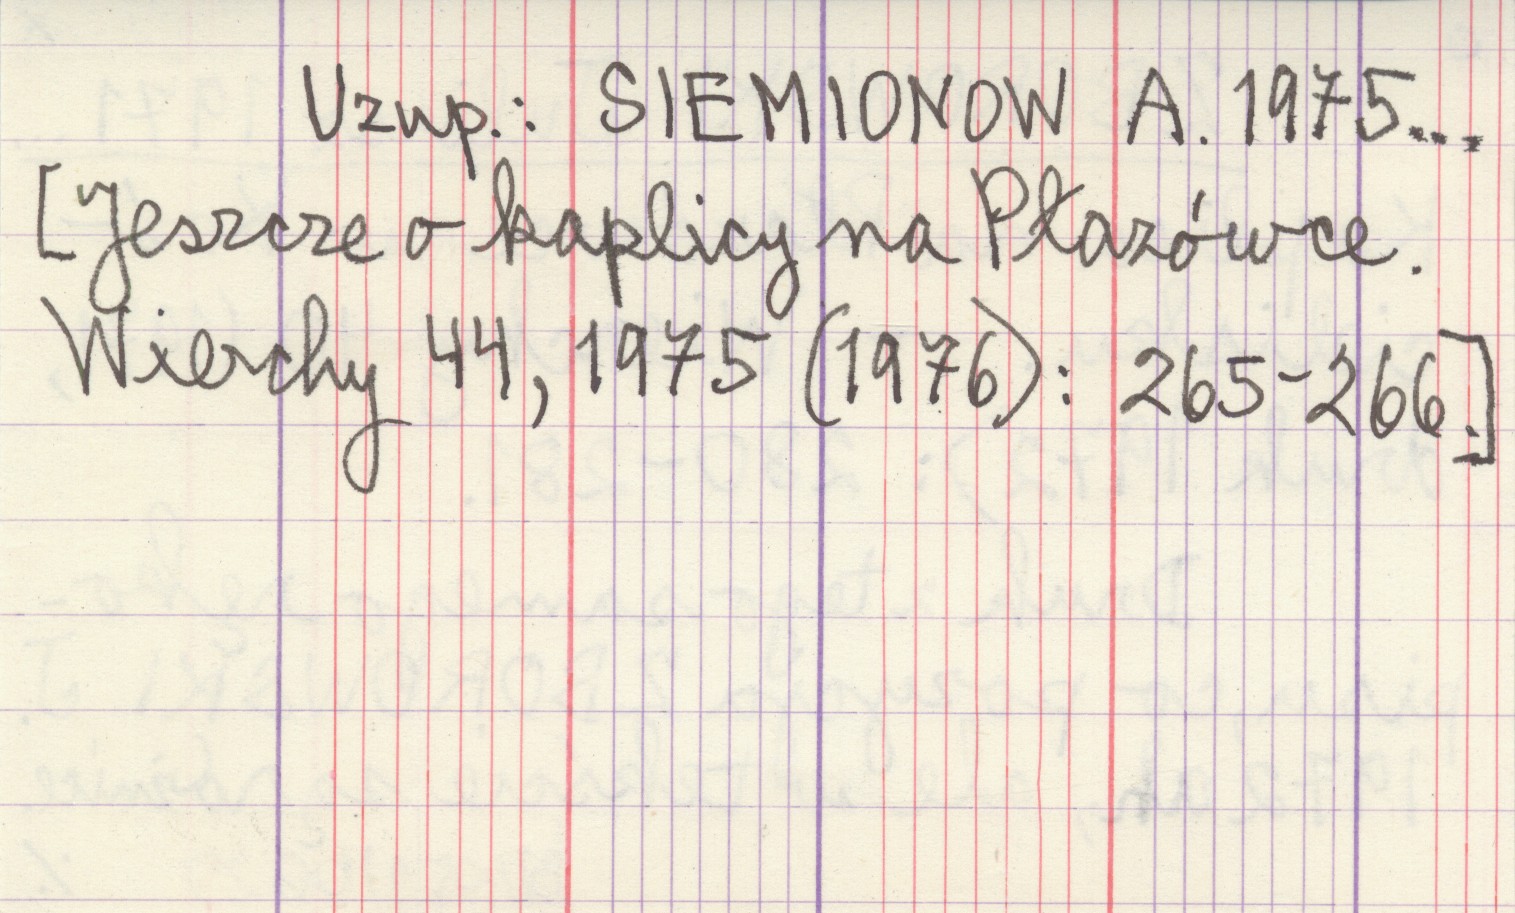 Uzup.: SIEMIONOW A. 1975...
[Jeszcze o kaplicy na Płazówce.
Wierchy 44, 1975 (1976): 265-266.]